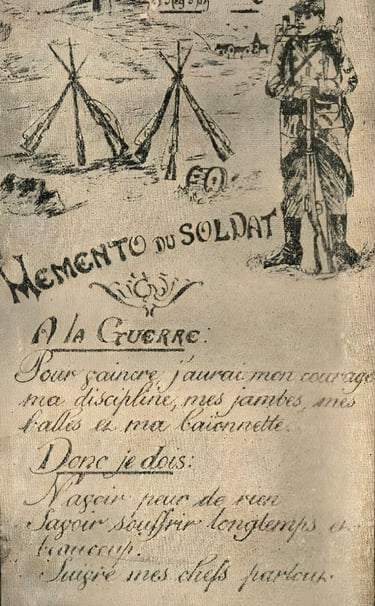 MEMENTO DU SOLDAT
A LA GUERRE:
Pour vaincre, j'aurai mon courage
ma discipline, mes jambes, mes
balles et ma baïonnette.
Donc je dois:
N'avoir peur de rien
Savoir souffrir longtemps et
beaucoup.
Suivre mes chefs partout.